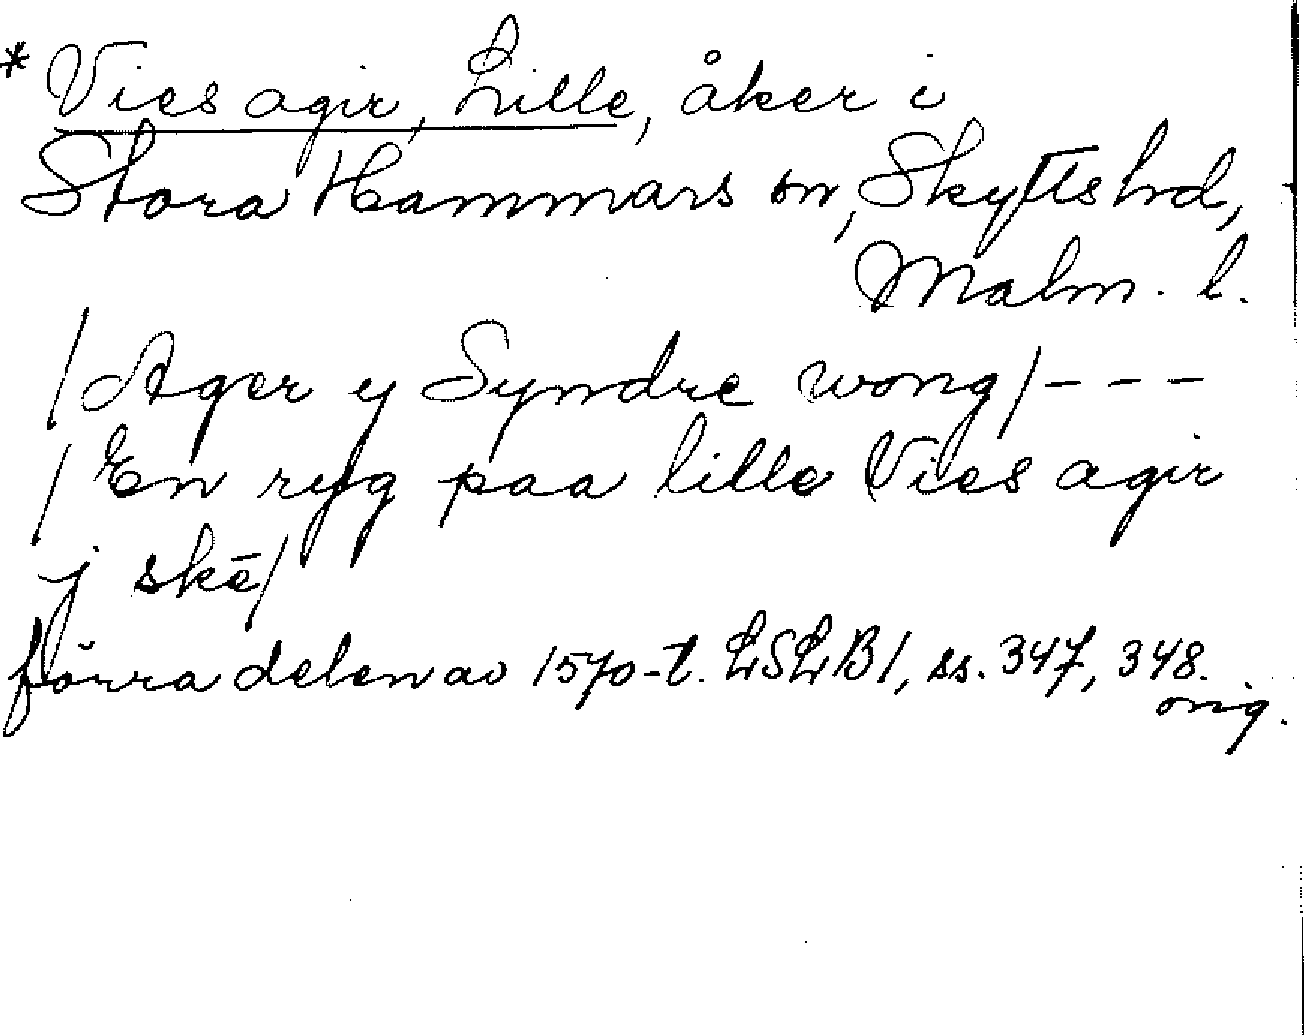 * Vies agir, Lille, åker i
Stora Hammars sn, Skytts hd,
Malm. l.
/Ager y Syndre wong/ - - -
/En ryg paa lille Vies agir
j skē/
förra delen av 1570-t. LSLB1, ss. 347, 348.
orig.